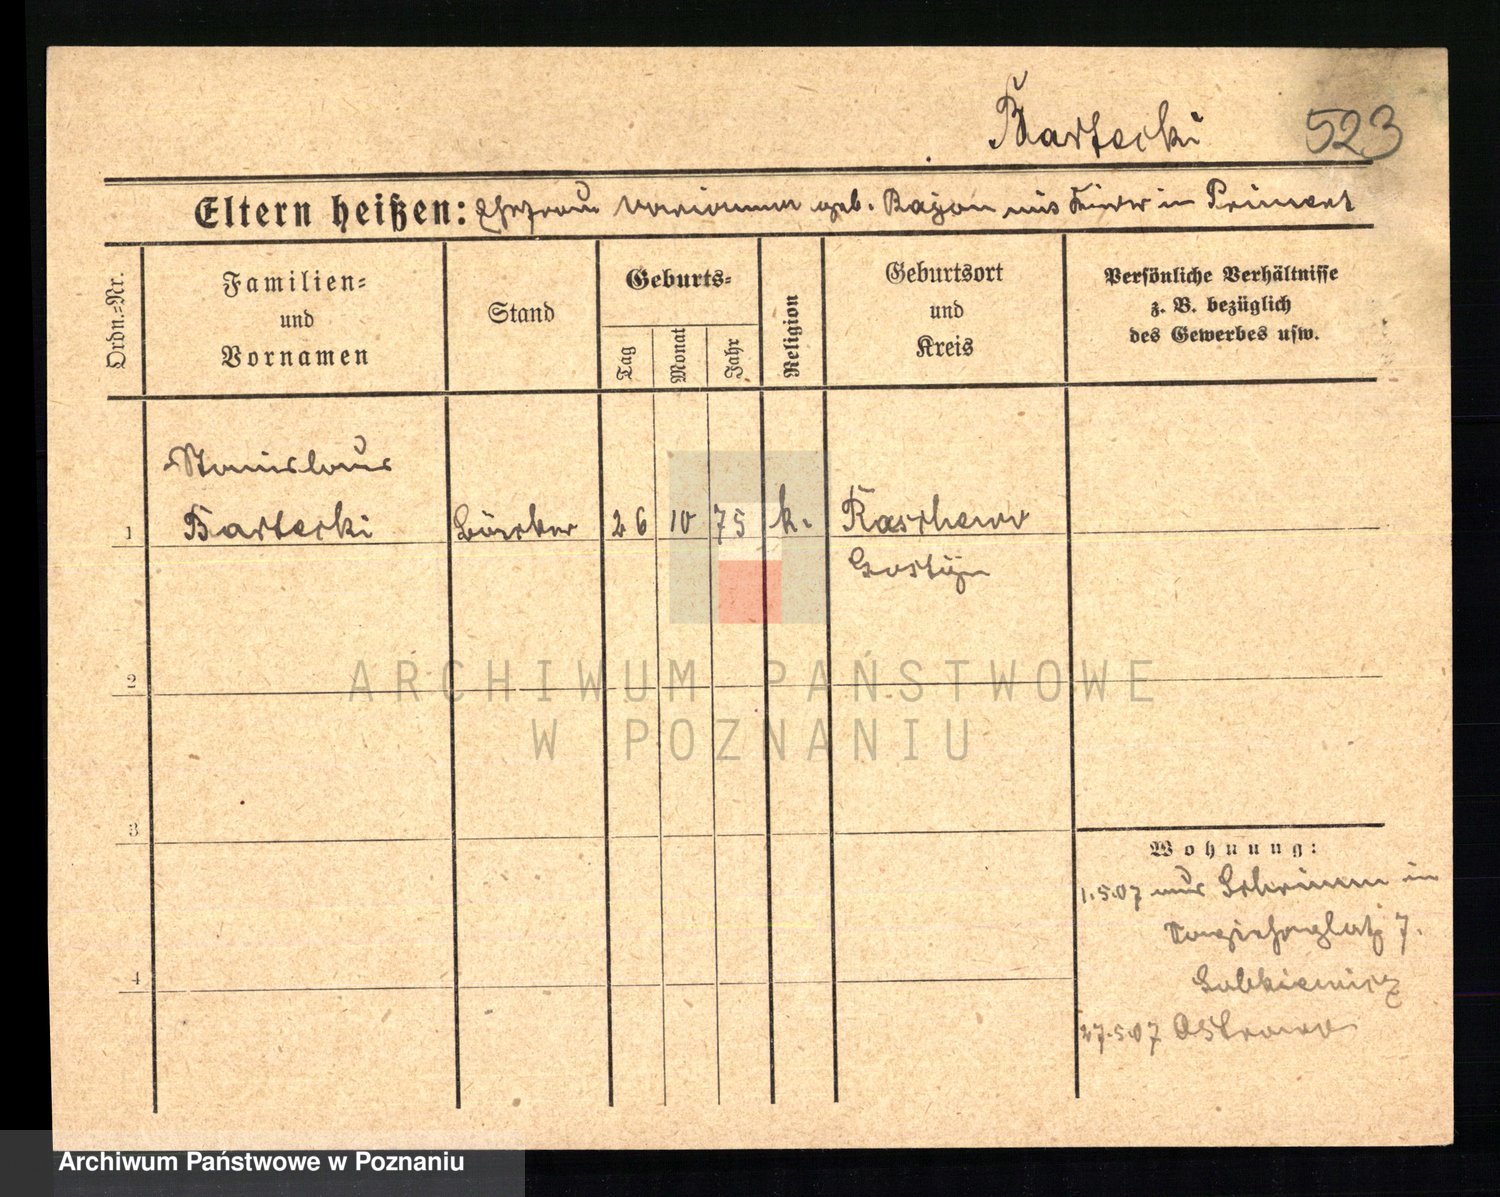 Bartecki 523
Eltern heißen: Ehefrau Marianna geb. Rajon in
Ordn.-Nr.
Familien-
und
Vornamen
Stand
Geburts-
Tag
Monat
Jahr
Religion
Geburtsort
und
Kreis
Persönliche Verhältnisse
z. B. bezüglich
des Gewerbes usw.
Stanislaus
1 Bartecki 26 10 75 k. Raschewo
Gostyn
2
3
4
Wohnung:
1.5.07 aus Schrimm in
7.
27.5.07 Ostrowo
ARCHIWUM PAŃSTWOWE
W POZNANIU
Archiwum Państwowe w Poznaniu